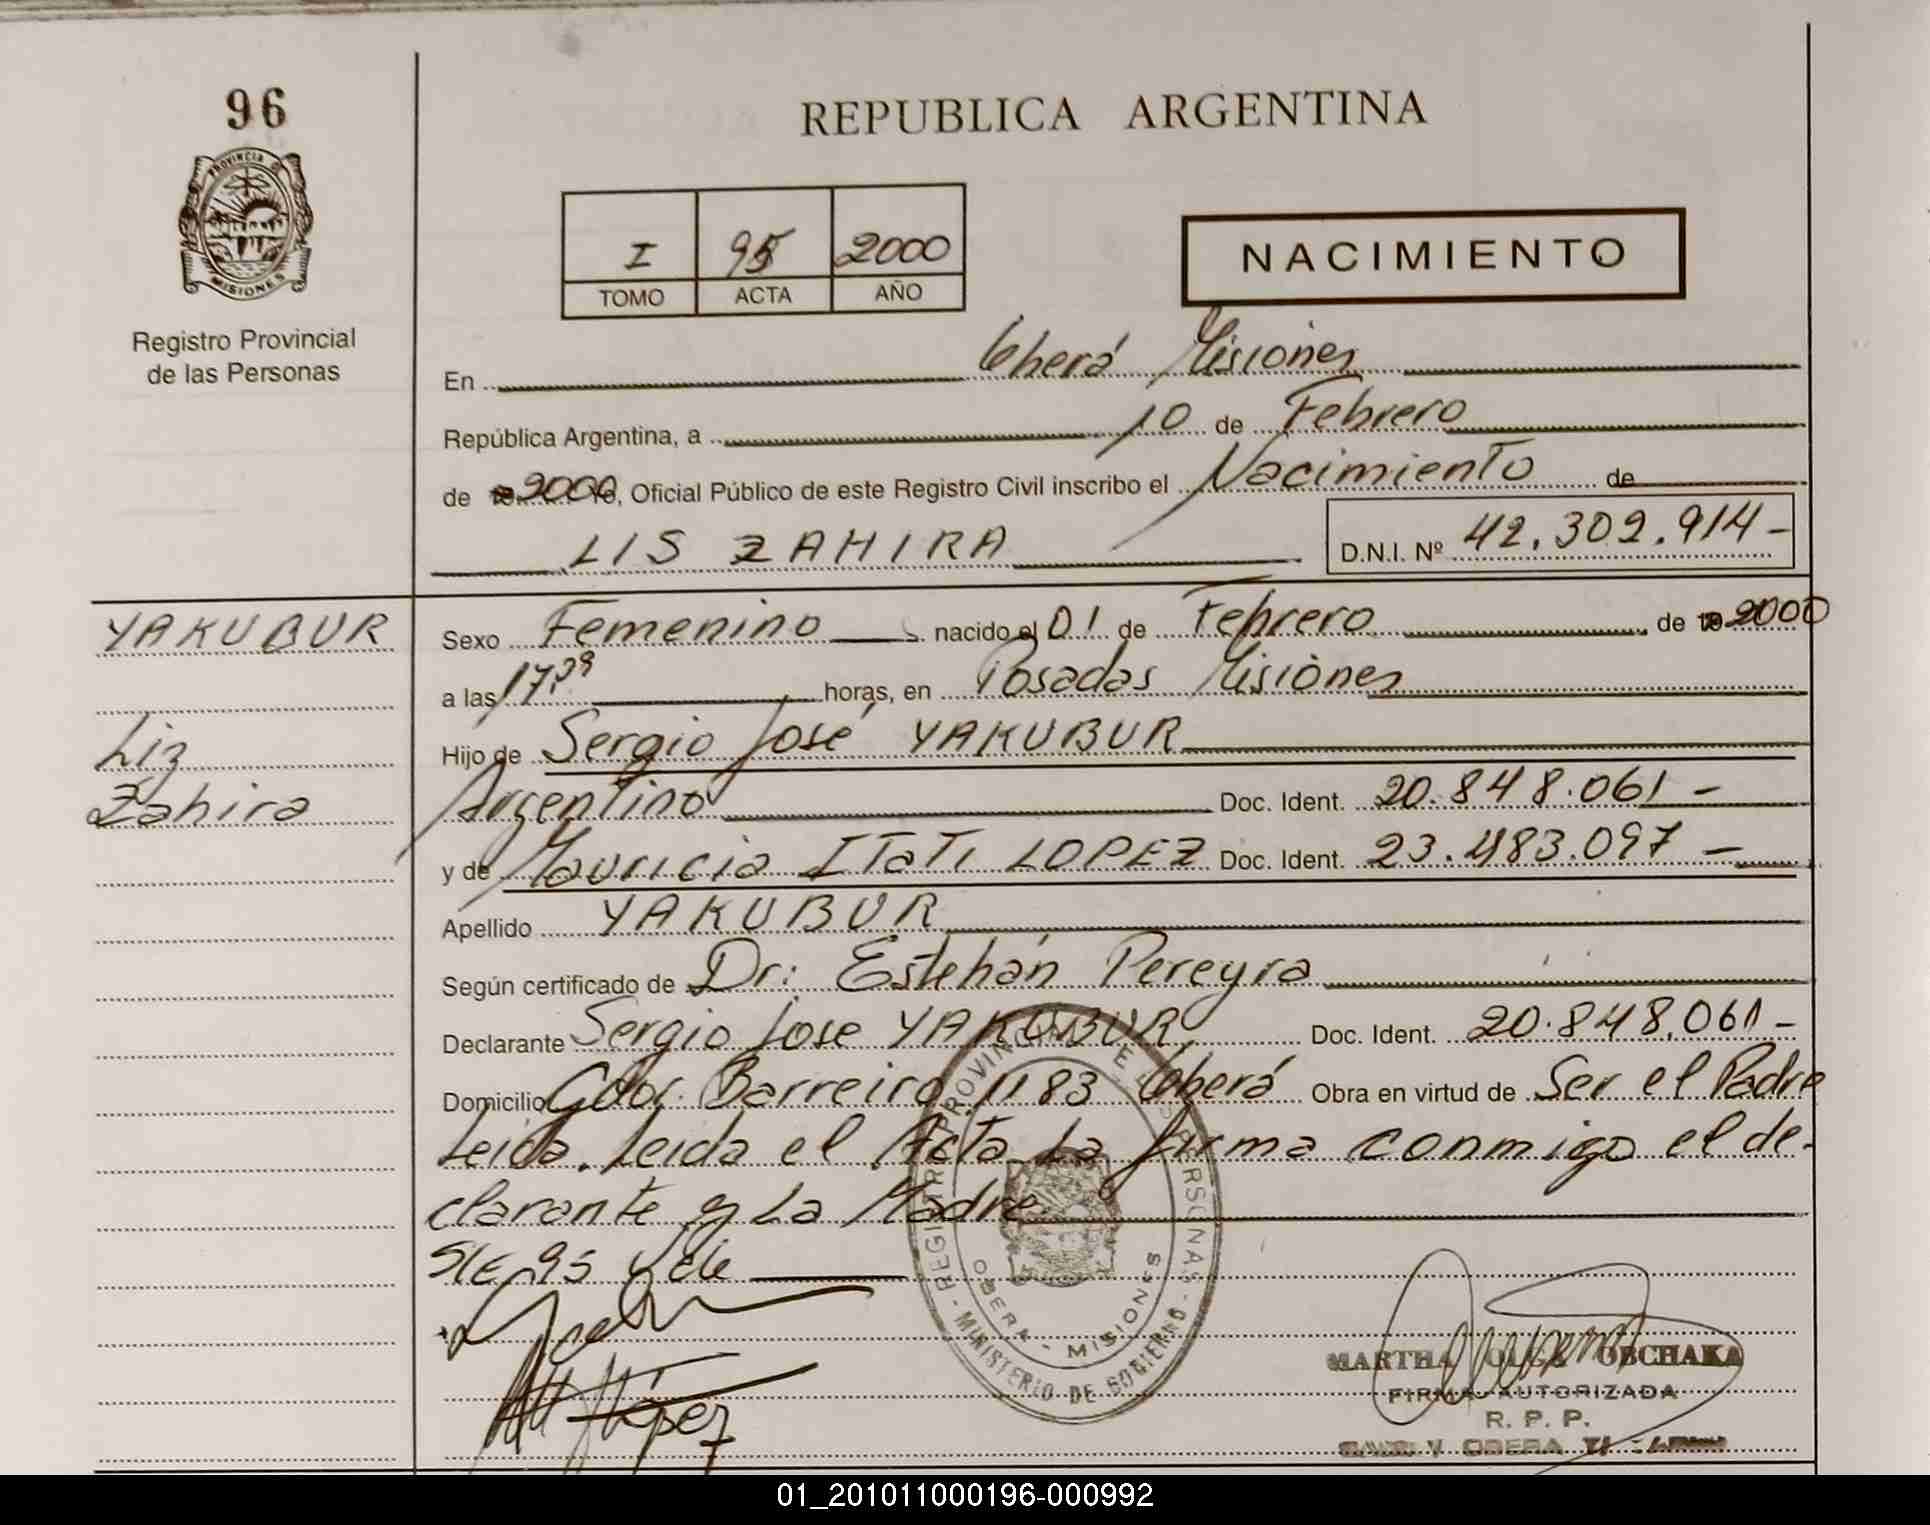 96
REPUBLICA ARGENTINA
PROVINCIA DE
MISIONES
Registro Provincial
de las Personas
I 95 2000
TOMO ACTA AÑO
NACIMIENTO
En Oberá Misiones
República Argentina, a 10 de Febrero
de 2000 Yo, Oficial Público de este Registro Civil inscribo el Nacimiento de
LIS ZAHIRA D.N.I. Nº 42.302.914-
YAKUBUR
Liz
Zahira
Sexo Femenino nacido el 01 de Febrero de 2000
a las 17,39 horas, en Posadas Misiones
Hijo de Sergio José YAKUBUR
Argentino Doc. Ident. 20.848.061-
y de Mauricia ITATI LOPEZ Doc. Ident. 23.483.097-
Apellido YAKUBUR
Según certificado de Dr: Estebán Pereyra
Declarante Sergio José YAKUBUR, Doc. Ident. 20.848.061-
Domicilio Gdor. Barreiro 1183 Oberá Obra en virtud de Ser el Padre
Leida. Leida el Acta La firma conmigo el de-
clarante y La Madre
S/E 95 Vale
REGISTRO PROVINCIAL DE LAS PERSONAS - MINISTERIO DE GOBIERNO
OBERA - MISIONES
López
MARTHA OLGA OBCHAKA
FIRMA AUTORIZADA
R. P. P.
OBERA
01_201011000196-000992